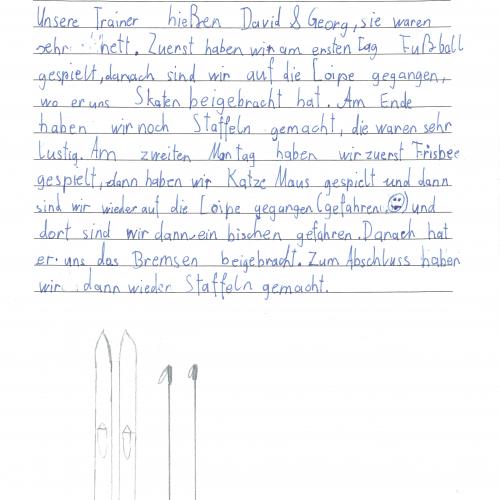 Unsere Trainer hießen David & Georg, sie waren
sehr nett. Zuerst haben wir am ersten Tag Fußball
gespielt, danach sind wir auf die Loipe gegangen,
wo er uns Skaten beigebracht hat. Am Ende
haben wir noch Staffeln gemacht, die waren sehr
lustig. Am zweiten Montag haben wir zuerst Frisbee
gespielt, dann haben wir Katze Maus gespielt und dann
sind wir wieder auf die Loipe gegangen (gefahren) und
dort sind wir dann ein bischen gefahren. Danach hat
er uns das Bremsen beigebracht. Zum Abschluss haben
wir dann wieder Staffeln gemacht.